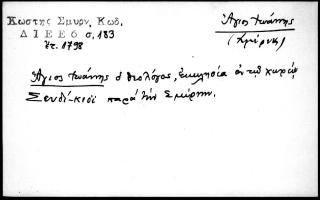 Κωστης Σμυρν. Κωδ.
ΔΙΕΕ6 σ. 183
ἔτ. 1798
Ἅγιος Ἰωάννης
(Σμύρνη)
Ἅγιος Ἰωάννης ὁ Θεολόγος, ἐκκλησία ἐν τῷ χωρίῳ
Σεβδί-κιοϊ παρὰ τὴν Σμύρνην.